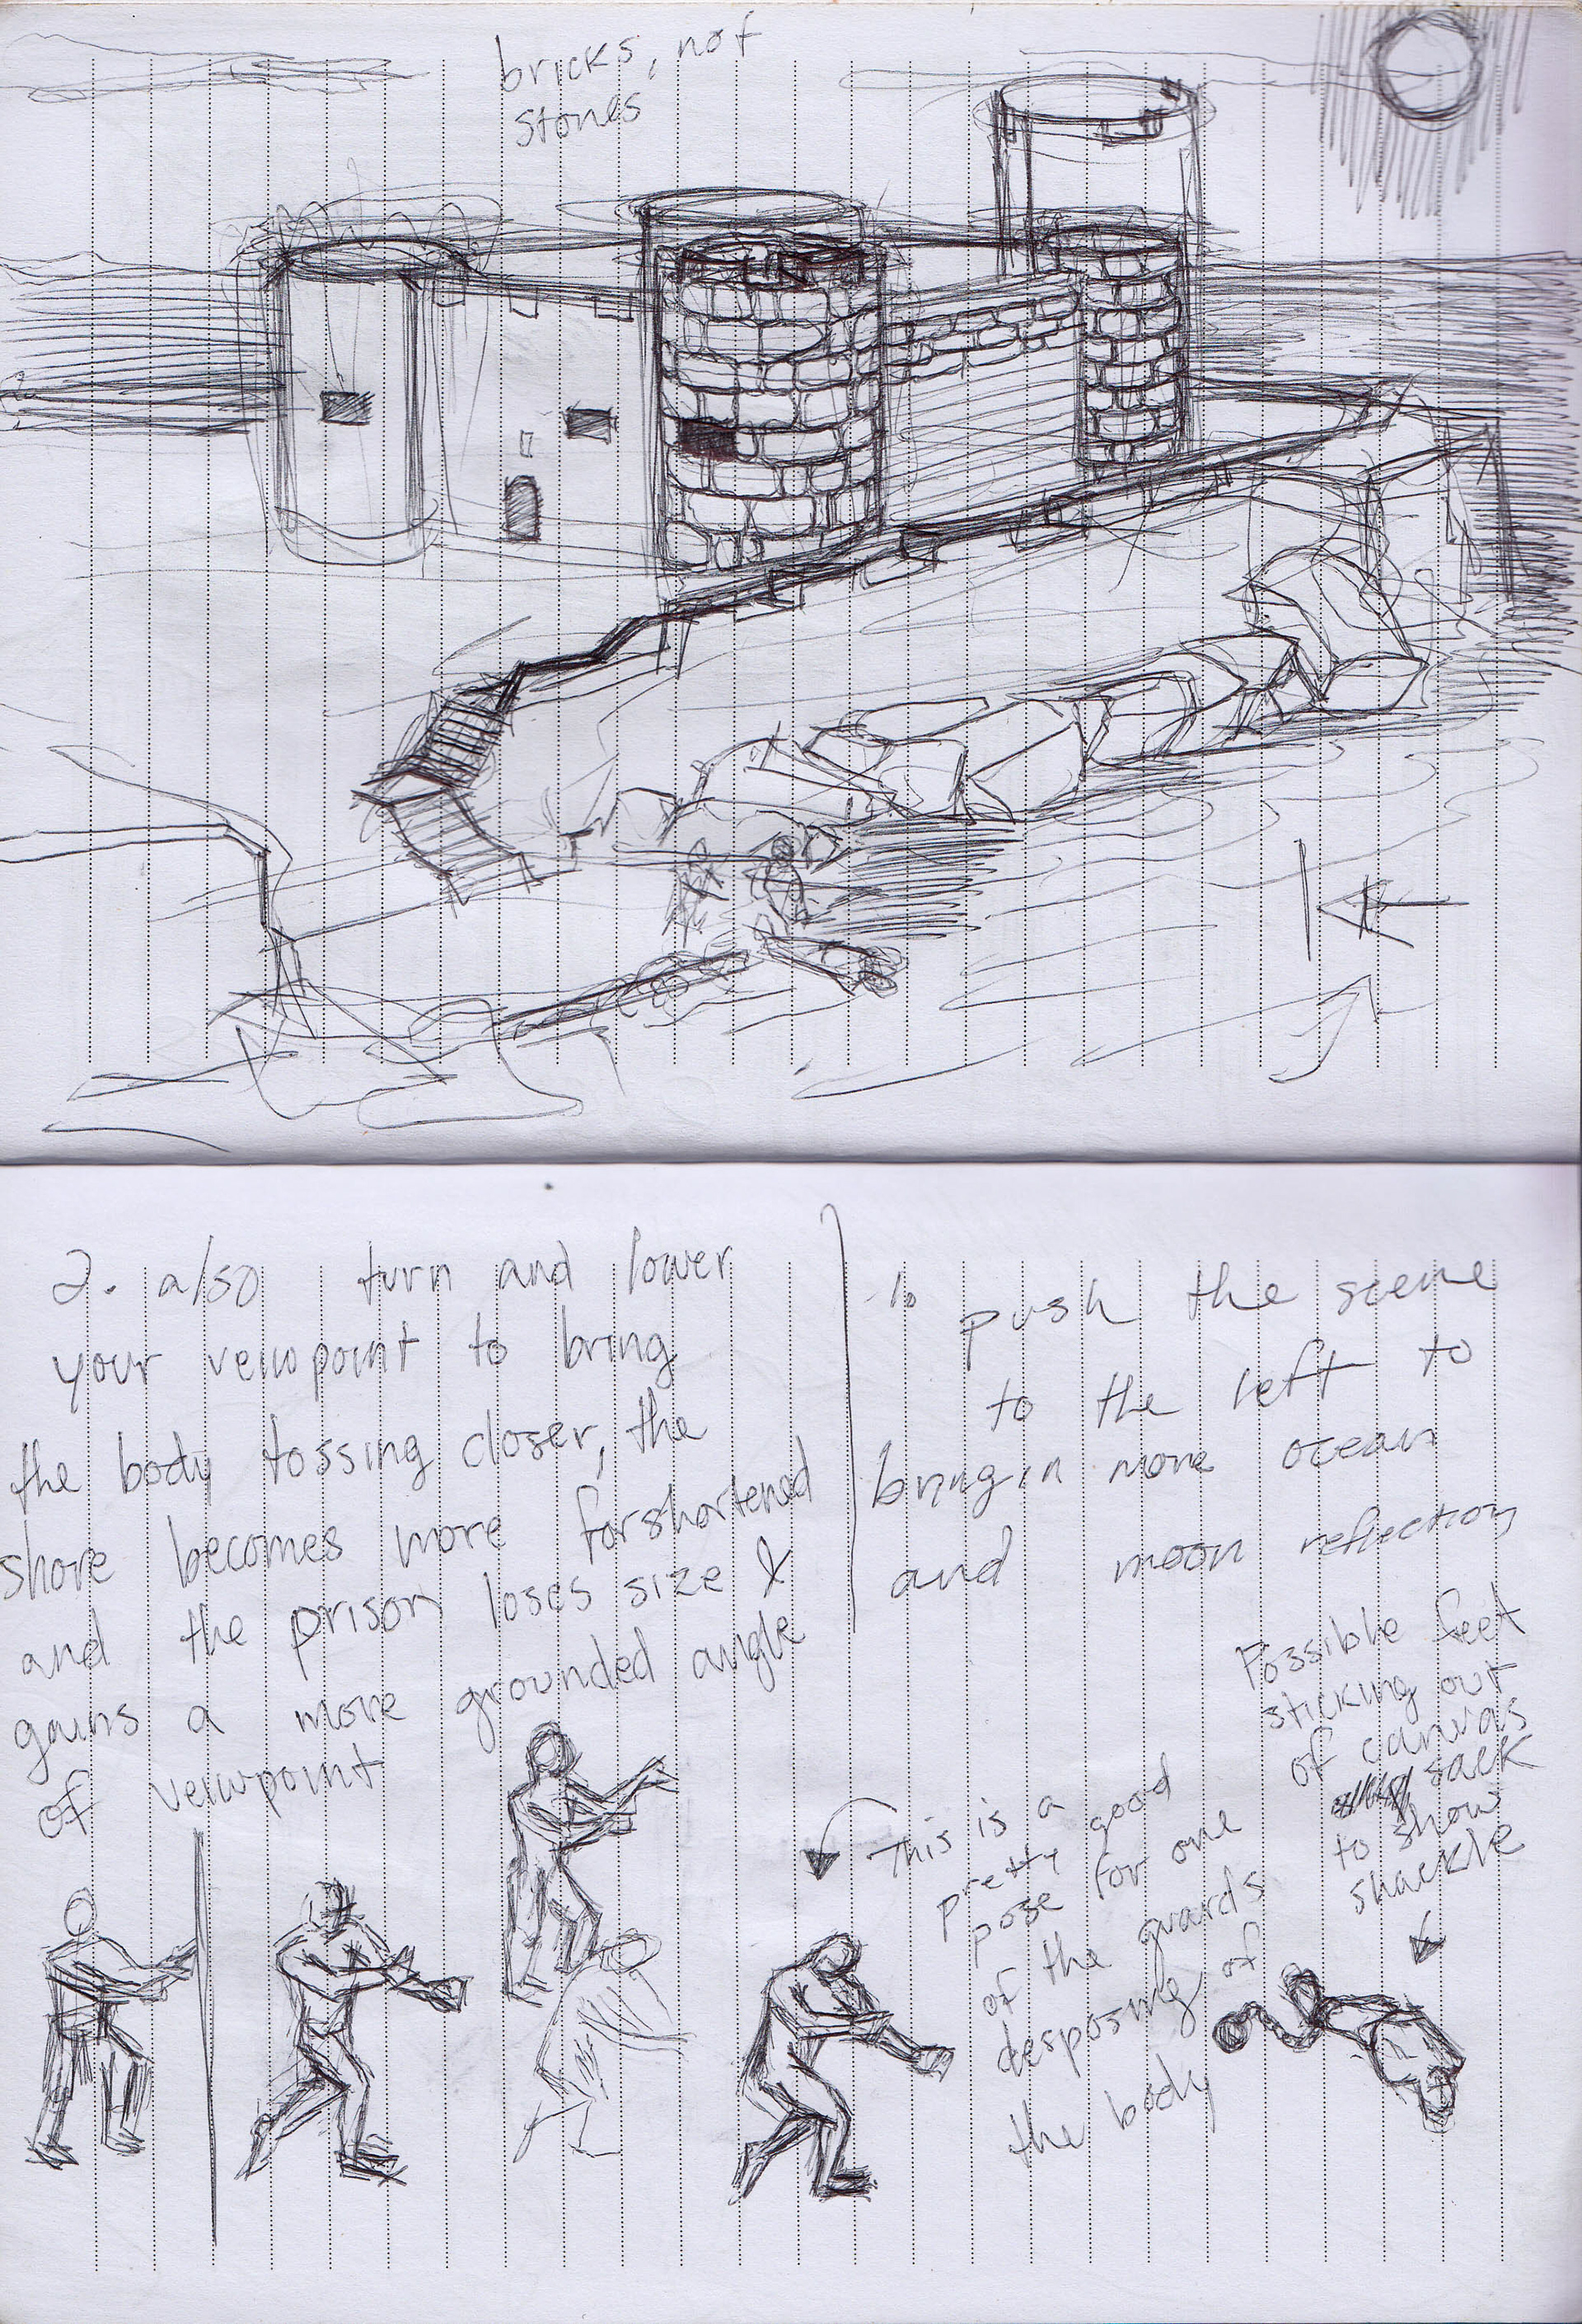 bricks, not
stones
2. also turn and lower
your veiwpoint to bring
the body tossing closer, the
shore becomes more forshortened
and the prison loses size &
gains a more grounded angle
of veiwpoint
1. push the scene
to the left to
bring in more ocean
and moon reflection
Possible feet
sticking out
of canvas
sack
to show
shackle
This is a
pretty good
pose for one
of the guards
desposing of
the body